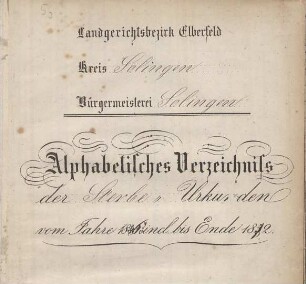 Landgerichtsbezirk Elberfeld
Kreis Solingen
Bürgermeisterei Solingen
Alphabetisches Verzeichniss
der Sterbe-Urkunden
vom Jahre incl. bis Ende 1872.